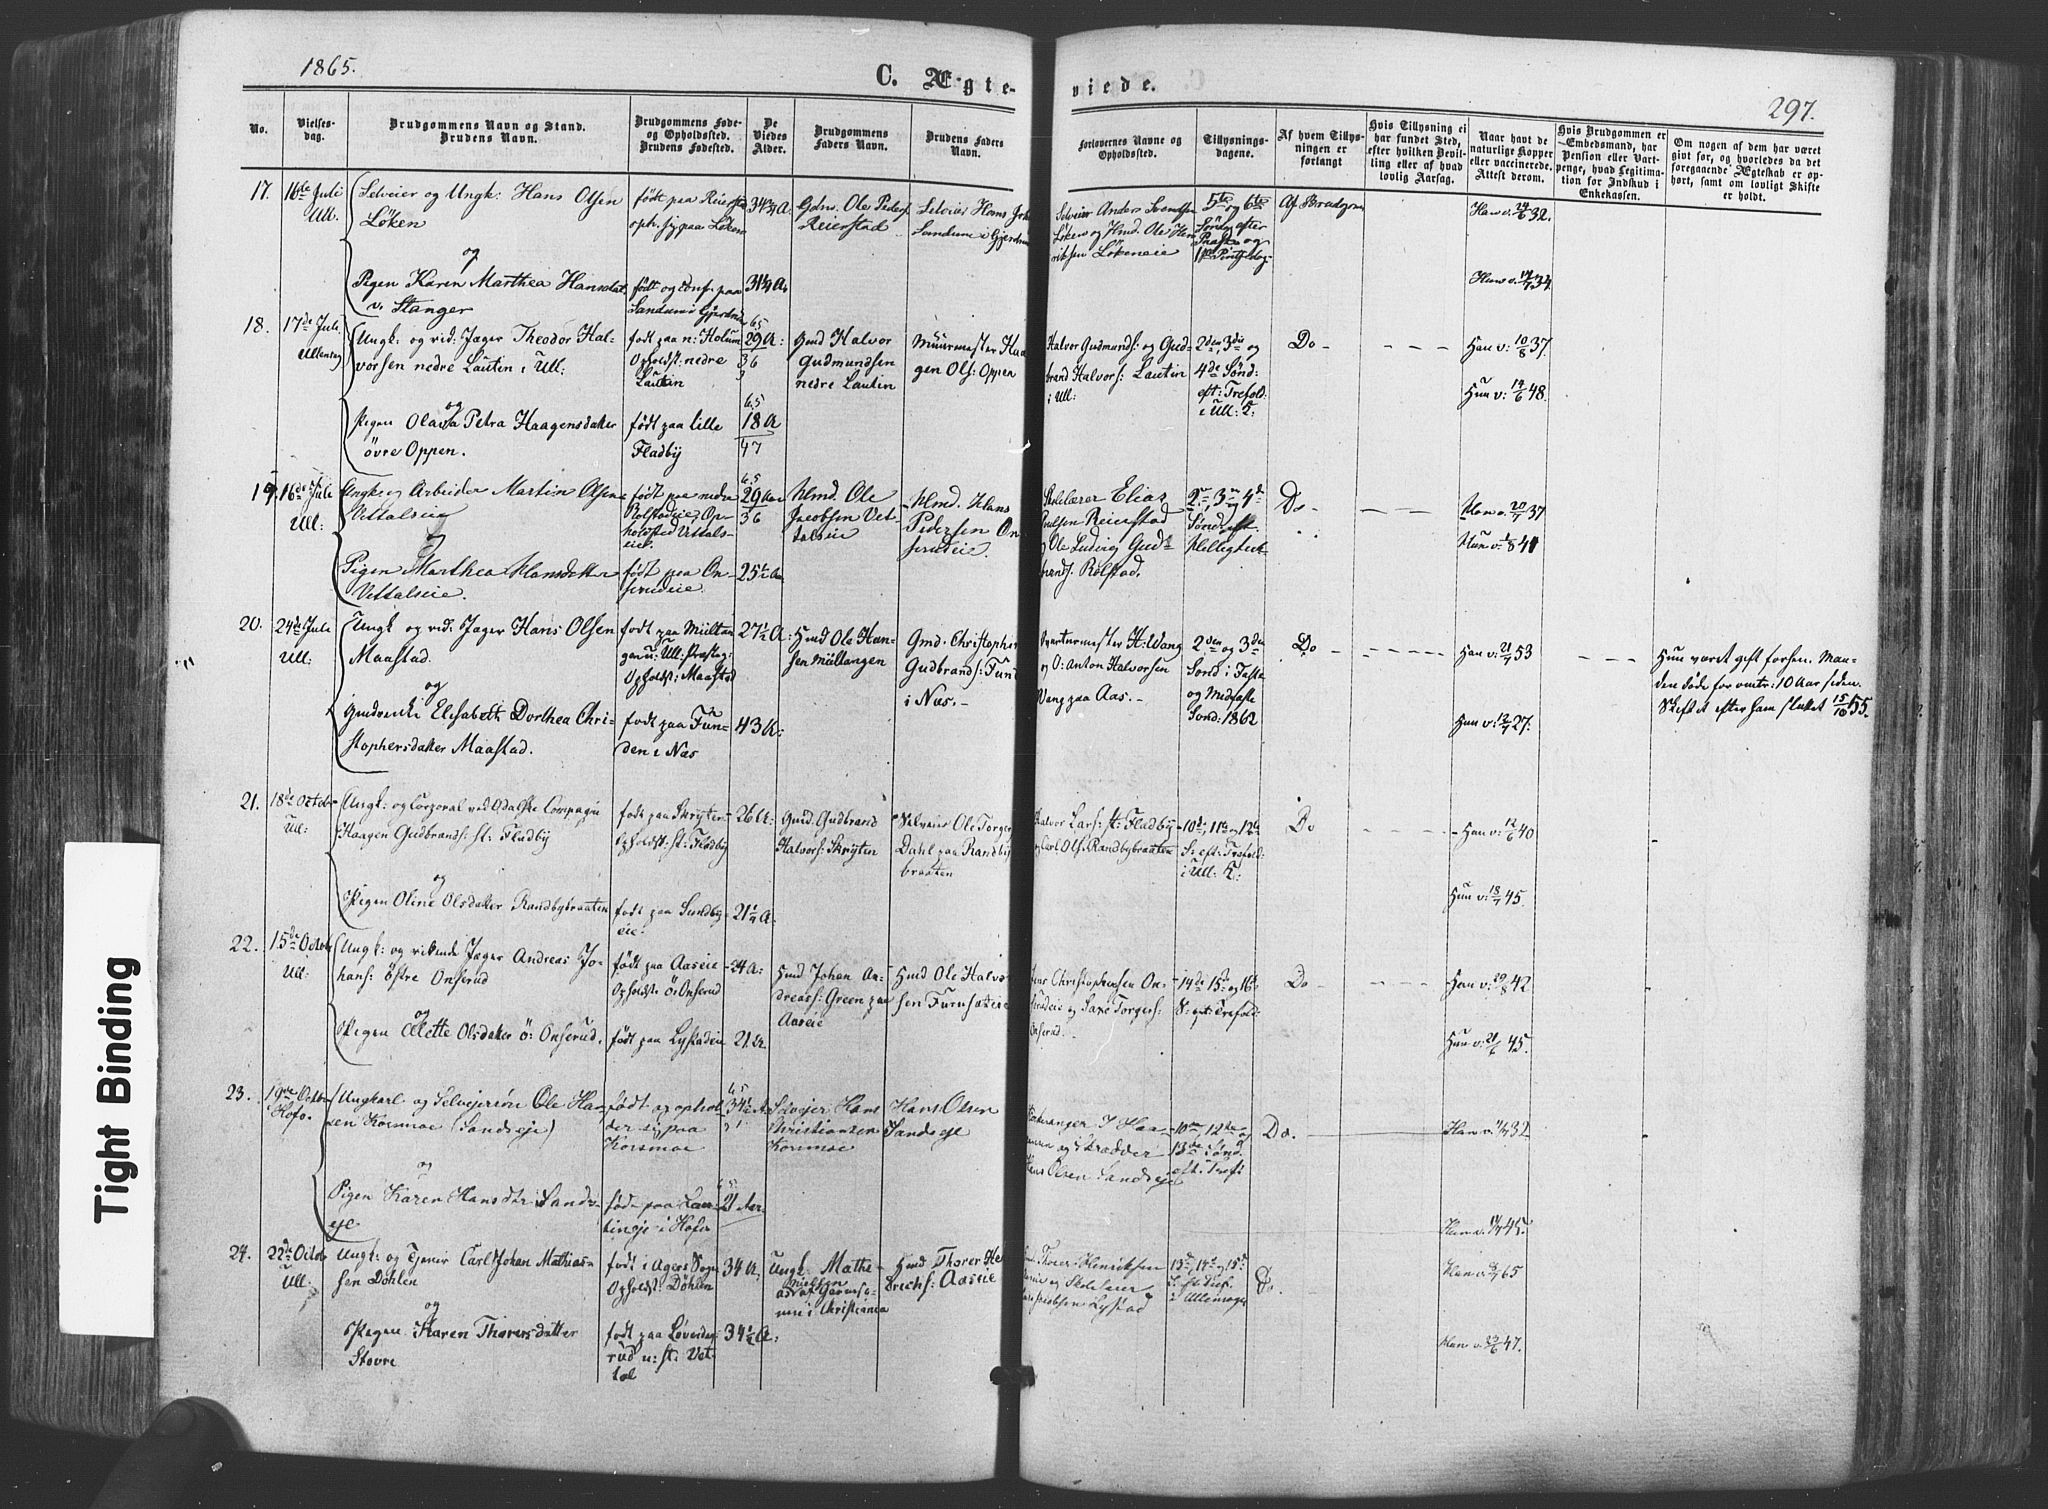 1865.
C. Ægte-
viede.
297.
No.
Vielses-
dag.
Brudgommens Navn og Stand.
Brudens Navn.
Brudgommens Føde-
og Opholdssted.
Brudens Fødested.
De
Viedes
Alder.
Brudgommens
Faders Navn.
Brudens Faders
Navn.
Forlovernes Navne og
Opholdssted.
Tillysnings-
dagene.
Af hvem Tillys-
ningen er
forlangt
Hvis Tillysning ei
har fundet Sted,
efter hvilken Bevil-
ling eller af hvad
lovlig Aarsag.
Naar havt de
naturlige Kopper
eller vaccinerede.
Attest derom.
Hvis Brudgommen er
Embedsmand, har
Pension eller Vart-
penge, hvad Legitima-
tion for Indskud i
Enkekassen.
Om nogen af dem har været
gift før, og hvorledes da det
foregaaende Ægteskab er op-
hørt, samt om lovligt Skifte
er holdt.
17.
16de Juli
Ull.
Selveier og Ungk: Hans Olsen
Løken
og
Pigen Karen Marthea Hansdat.
v. Stanger
født paa Reierstad
oph. sig paa Løken
født og conf. paa
Sandum i Gjerdrum
34 3/4 A.
31 1/4 A.
Gdm. Ole Peders.
Reierstad
Selveier Hans
Sandum i Gjerdrum
Selveier Anders Svendsen
Løken og Hmd. Ole Hen
riksen Løkeneie
5te og 6te
Sønd. efter
Paaske og
1ste Pintsedag
Af Brudgom
Han v. 24/6 32.
Hun v. 14/7 34.
18.
17de Juli
Ullensag
Ungk: og vid: Jæger Theodor Hal-
vorsen nedre Lautin i Ull:
og
Pigen Olava Petra Haagensdatter
øvre Oppen.
født paa n: Holum
Opholdst: nedre
Lautin
født paa lille
Fladby
65
29 A:
36
65
18 A
47
Gmd Halvor
Gudmundsen
nedre Lautin
Muurmester Haa
gen Ols: Oppen
Halvor Gudmunds: og Gud-
brand Halvors: Lautin
i Ull:
2den, 3die og
4de Sønd:
eft: Trefold:
i Ull: K:
Do -
Han v: 10/8 37.
Hun v: 19/6 48.
19.
16de Juli
Ull:
Ungk: og Arbeider Martin Olsen
Vettalseie
og
Pigen Marthea Hansdatter
Vettalseie.
født paa nedre
Rolstadeie, Op-
holdsted Vettals-
eie.
født paa On-
serudeie
65
29 Aar
36
25 1/2 Aar
Hmd. Ole
Jacobsen Vet-
talseie
Hmd. Hans
Pedersen On
serudeie.
Skolelærer Elias
Poulsen Reierstad
og Ole Ludvig Gud-
brands: Rolstad.
2n, 3n og 4de
Sønd. eft.
Helligtrek
Do -
Han v. 20/7 37
Hun v. 1/8 41
20.
24de Juli
Ull:
Ungk og vid: Jæger Hans Olsen
Maastad.
og
Gmdsenke Elisabeth Dorthea Chri-
stophersdatter Maastad.
født paa Mültan-
gen u: Ull: Præsteg:
Opholdst: Maastad
født paa Fun-
den i Næs
27 1/2 A:
43 A:
Hmd Ole Han-
sen Mültangen
Gmd. Christopher
Gudbrands: Fund
i Næs.-
Qvartermester H. Wang
og O: Anton Halvorsen
Vang paa Aas.-
2den og 3die
Sønd: i Faste
og Midfaste
Sønd: 1862
Do
Han v: 21/7 53
Hun v: 12/7 27.
Hun været gift forhen. Man-
den døde for omtr: 10 Aar siden.
Skiftet efter ham sluttet 15/10 55.
21.
18de Octob.
Ull:
Ungk: og Corporal ved Odalske Compagni
Haagen Gudbrands: st: Fladby
og
Pigen Oline Olsdatter Randbybraaten
født paa Skryten
Opholdst: st: Fladby
født paa Sundby-
eie:
26 A:
21 1/4 A.
Gmd Gudbrand
Halvors: Skryten
Selveier Ole Torger
Dahl paa Randby
braaten
Halvor Lars: st: Fladby
og Carl Ols: Randbybraaten
10de, 11te og 12te
S: eft: Trefold:
i Ull: K:
Do
Han v: 12/6 40
Hun v: 18/7 45.
22.
15de Octob.
Ull:
Ungk: og virkende Jæger Andreas Jo-
hans: Østre Onserud
og
Pigen Olette Olsdatter ø: Onserud.
født paa Aaseie
Opholdst: ø: Onserud
født paa Lystadeie
24 A:
21. A.
Hmd Johan An-
dreass: Green paa
Aaseie
Hmd Ole Halvor
sen Furusæteie
Hans Christophersen On-
serudeie og Saxe Torgers:
Onserud.
14de 15te og 16de
S: eft: Trefold:
Do -
Han v: 29/8 42
Hun v: 21/6 45.
23.
19de Octbr
Hofo.
Ungkarl og Selvejersøn Ole Han
sen Korsmoe (Sandseje)
og
Pigen Karen Hansdtr: Sands-
eje
født og ophol-
der sig paa
Korsmoe
født paa Lau-
tineje i Hofo
65
34 1/2 A.
21 Aar
Selvejer Hans
Christiansen
Korsmoe
Hans Olsen
Sandseje
Kirkesanger J Haa
og Skrædder
Hans Olsen Sandseje
10de, 12te og
13de Sønd.
eft. Trefo
Do.
Han v. 1/7 32
Hun v. 14/7 45.
24.
22de Octb
Ull:
Ungk: og Tjener Carl Johan Mathias-
sen Döhlen
og
Pigen Karen Thorersdatter
Stovre
født i Agers Sogn
Opholdst: Döhlen
født paa Løversby-
rud u: st: Vet-
tal
34 A.
34 1/2 A:
Ungk. Mathe-
Nielsen
i Christiania
Hmd Thorer He
drichs: Aaseie
Thorer Henriksen
Aaseie og Skolelærer
Jacobsen Lystad
13de, 14de og 15de
S. eft. Tref.
i Ullensager
Do.
Han v. 65
Hun v. 47.
Tight Binding